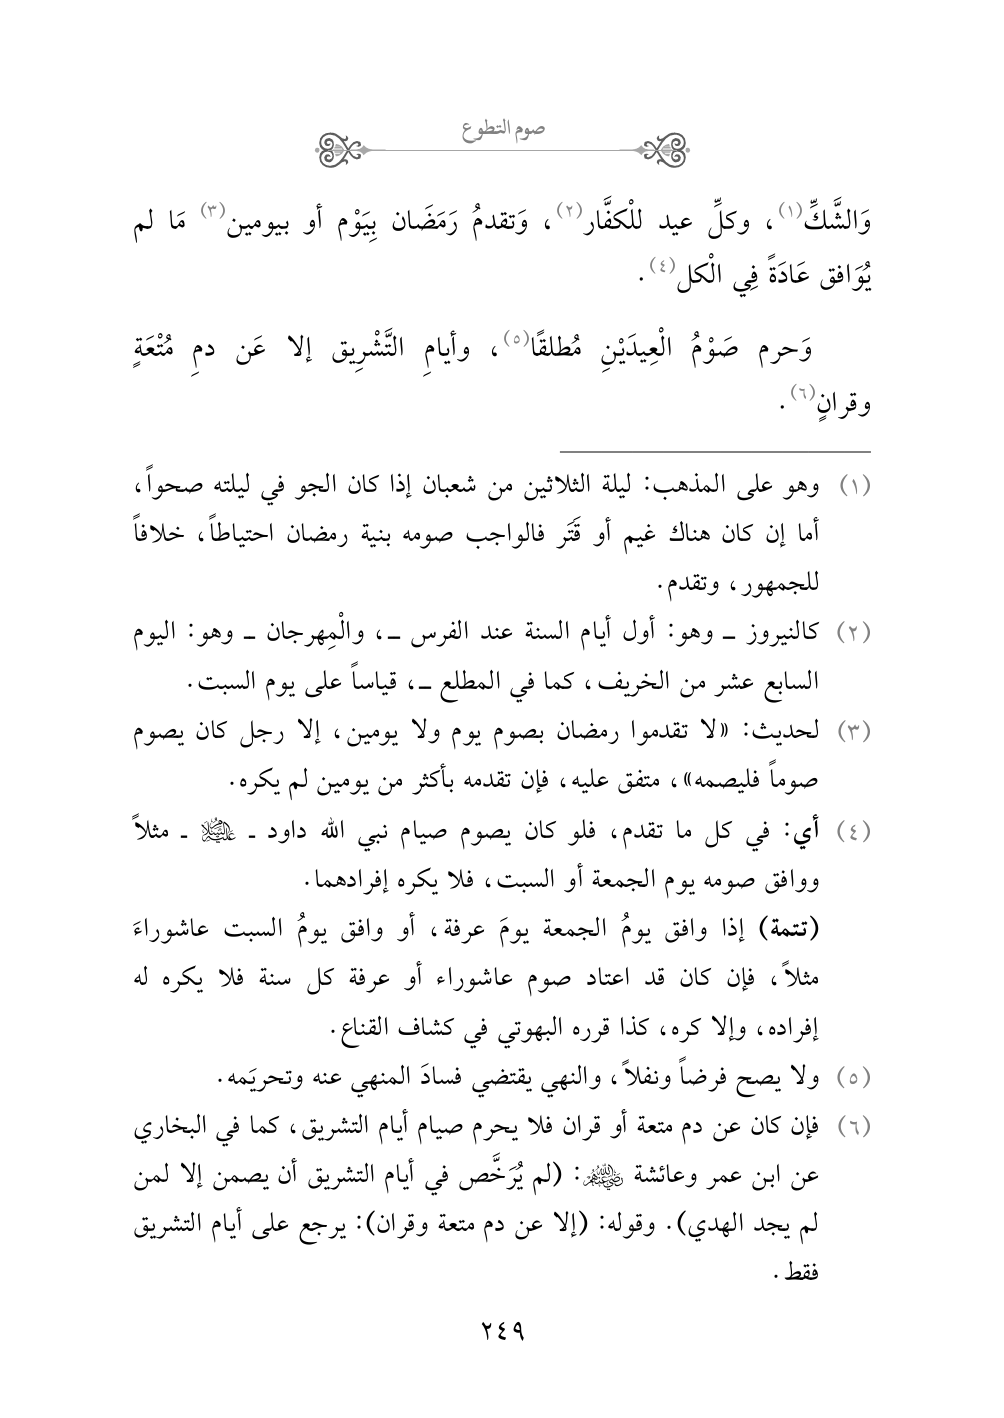 صوم التطوع
وَالشَّكِّ(١)، وكلِّ عيد للْكفَّار(٢)، وَتقدمُ رَمَضَان بِيَوْم أو بيومين(٣) مَا لم
يُوَافق عَادَةً فِي الْكل(٤).
وَحرم صَوْمُ الْعِيدَيْنِ مُطلقًا(٥)، وأيامِ التَّشْرِيق إلا عَن دمِ مُتْعَةٍ
وقرانٍ(٦).
(١) وهو على المذهب: ليلة الثلاثين من شعبان إذا كان الجو في ليلته صحواً،
أما إن كان هناك غيم أو قَتَر فالواجب صومه بنية رمضان احتياطاً، خلافاً
للجمهور، وتقدم.
(٢) كالنيروز ــ وهو: أول أيام السنة عند الفرس ــ، والْمِهرجان ــ وهو: اليوم
السابع عشر من الخريف، كما في المطلع ــ، قياساً على يوم السبت.
(٣) لحديث: «لا تقدموا رمضان بصوم يوم ولا يومين، إلا رجل كان يصوم
صوماً فليصمه»، متفق عليه، فإن تقدمه بأكثر من يومين لم يكره.
(٤) أي: في كل ما تقدم، فلو كان يصوم صيام نبي الله داود ـ عليه السلام ـ مثلاً
ووافق صومه يوم الجمعة أو السبت، فلا يكره إفرادهما.
(تتمة) إذا وافق يومُ الجمعة يومَ عرفة، أو وافق يومُ السبت عاشوراءَ
مثلاً، فإن كان قد اعتاد صوم عاشوراء أو عرفة كل سنة فلا يكره له
إفراده، وإلا كره، كذا قرره البهوتي في كشاف القناع.
(٥) ولا يصح فرضاً ونفلاً، والنهي يقتضي فسادَ المنهي عنه وتحريَمه.
(٦) فإن كان عن دم متعة أو قران فلا يحرم صيام أيام التشريق، كما في البخاري
عن ابن عمر وعائشة رضي الله عنهم: (لم يُرَخَّص في أيام التشريق أن يصمن إلا لمن
لم يجد الهدي). وقوله: (إلا عن دم متعة وقران): يرجع على أيام التشريق
فقط.
٢٤٩